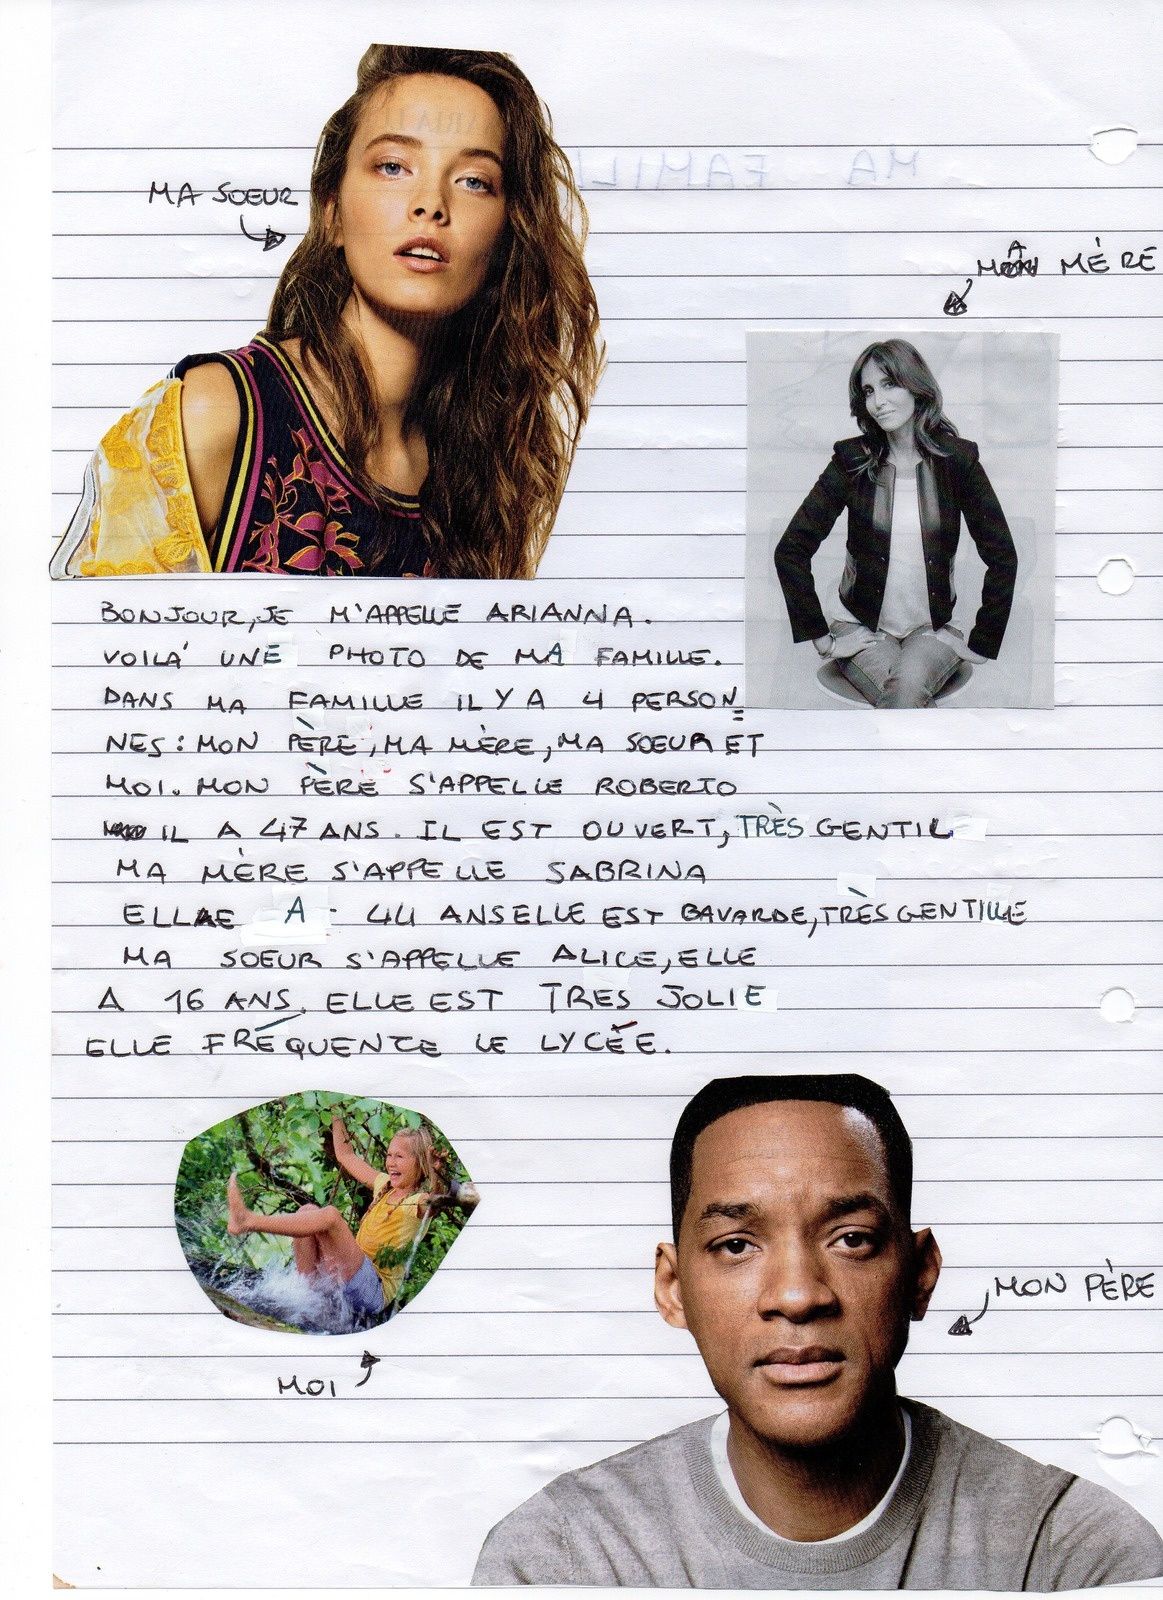 MA SOEUR
MA MÈRE
BONJOUR, JE M'APPELLE ARIANNA.
VOILÁ UNE PHOTO DE MA FAMILLE.
DANS MA FAMILLE IL Y A 4 PERSON
NES: MON PÈRE, MA MÈRE, MA SOEUR ET
MOI. MON PÈRE S'APPELLE ROBERTO
IL A 47 ANS. IL EST OUVERT, TRÈS GENTIL
MA MÈRE S'APPELLE SABRINA
ELLE A 44 ANS ELLE EST BAVARDE, TRÈS GENTILLE
MA SOEUR S'APPELLE ALICE, ELLE
A 16 ANS. ELLE EST TRES JOLIE
ELLE FRÉQUENTE LE LYCÉE.
MOI
MON PÈRE